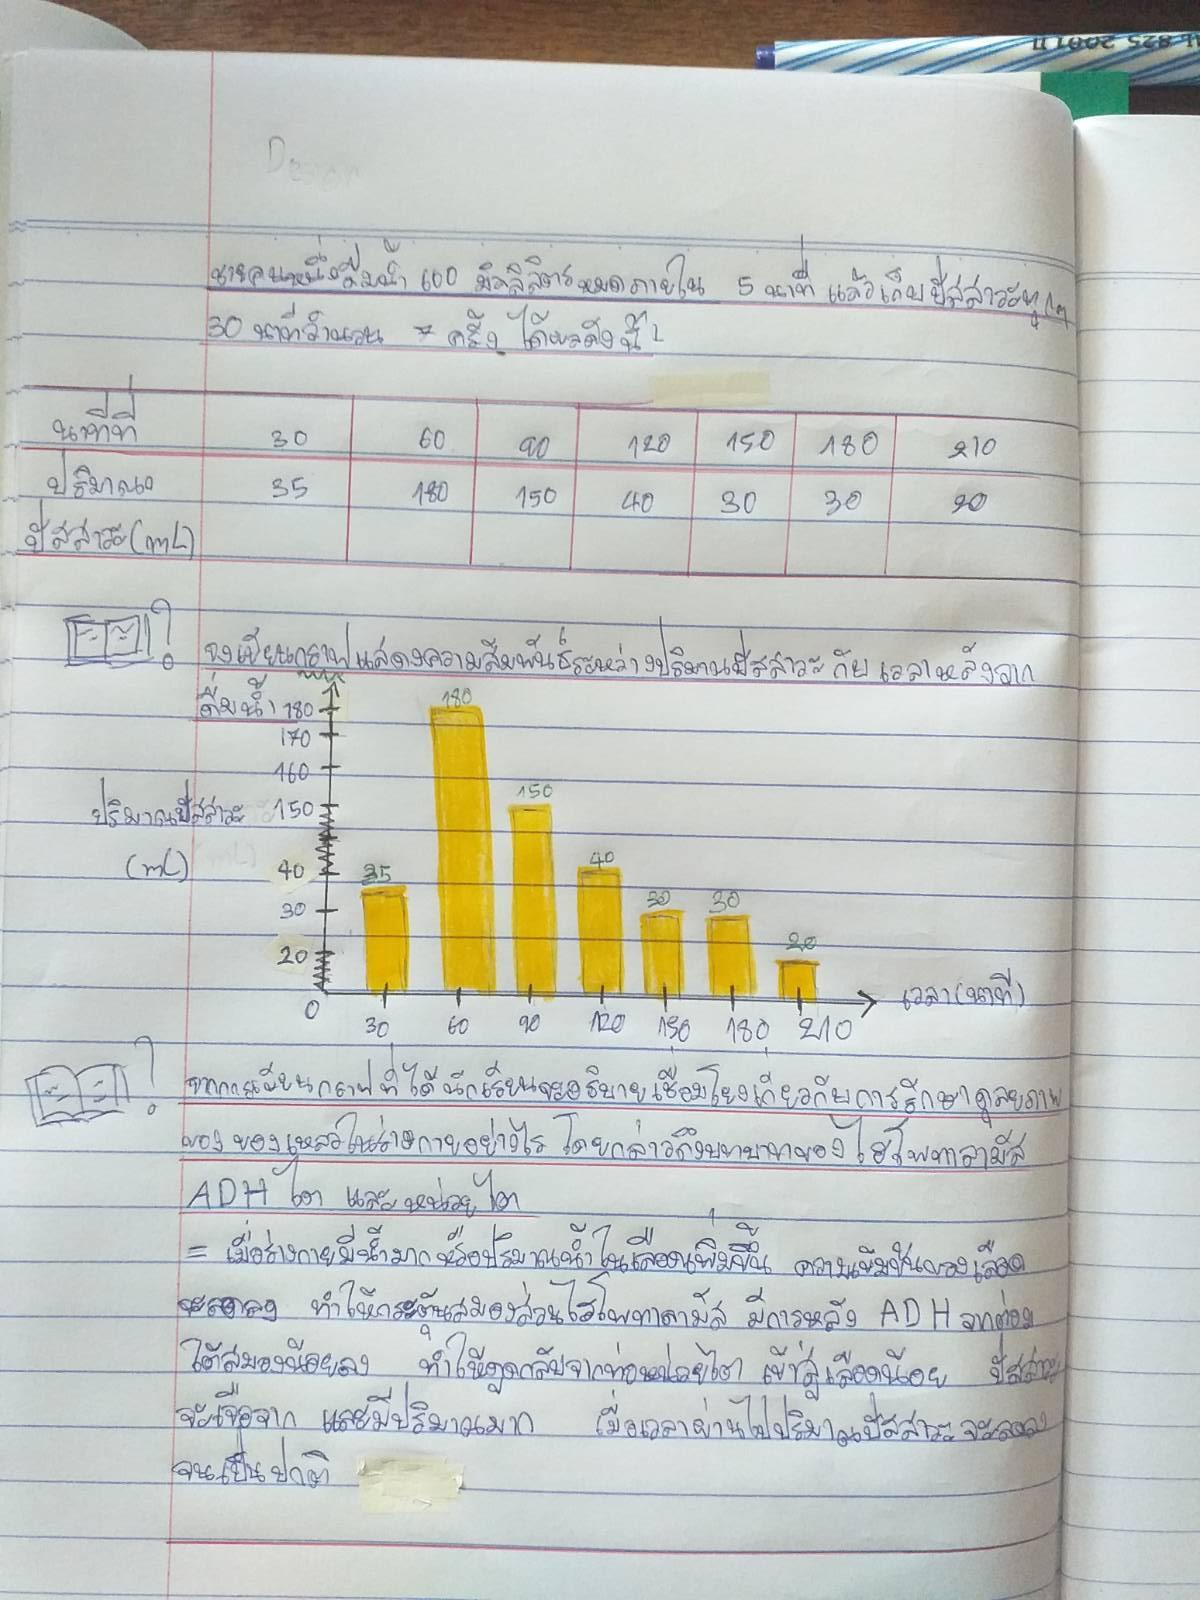 AL 825 2001 TI
ชายคนหนึ่งดื่มน้ำ 600 มิลลิลิตร หมดภายใน 5 นาที แล้วเก็บปัสสาวะทุกๆ
30 นาทีจำนวน 7 ครั้ง ได้ผลดังนี้
นาทีที่ 30 60 90 120 150 180 210
ปริมาณ 35 180 150 40 30 30 20
ปัสสาวะ(mL)
จงเขียนกราฟแสดงความสัมพันธ์ระหว่างปริมาณปัสสาวะ กับ เวลาหลังจาก
ดื่มน้ำ
180
170
160
ปริมาณปัสสาวะ 150
(mL) 40
30
20
0
35 180 150 40 30 30 20
30 60 90 120 150 180 210
เวลา(นาที)
จากการเขียนกราฟที่ได้ นักเรียนจะอธิบายเชื่อมโยงเกี่ยวกับการรักษาดุลยภาพ
ของของเหลวในร่างกายอย่างไร โดยกล่าวถึงบทบาทของ ไฮโพทาลามัส
ADH ไต และ หน่วยไต
= เมื่อร่างกายมีน้ำมาก หรือปริมาณน้ำในเลือดเพิ่มขึ้น ความเข้มข้นของเลือด
จะลดลง ทำให้กระตุ้นสมองส่วนไฮโพทาลามัส มีการหลั่ง ADH จากต่อม
ใต้สมองน้อยลง ทำให้ดูดกลับจากท่อหน่วยไต เข้าสู่เลือดน้อย ปัสสาวะ
จะเจือจาก และมีปริมาณมาก เมื่อเวลาผ่านไปปริมาณปัสสาวะจะลดลง
จนเป็นปกติ